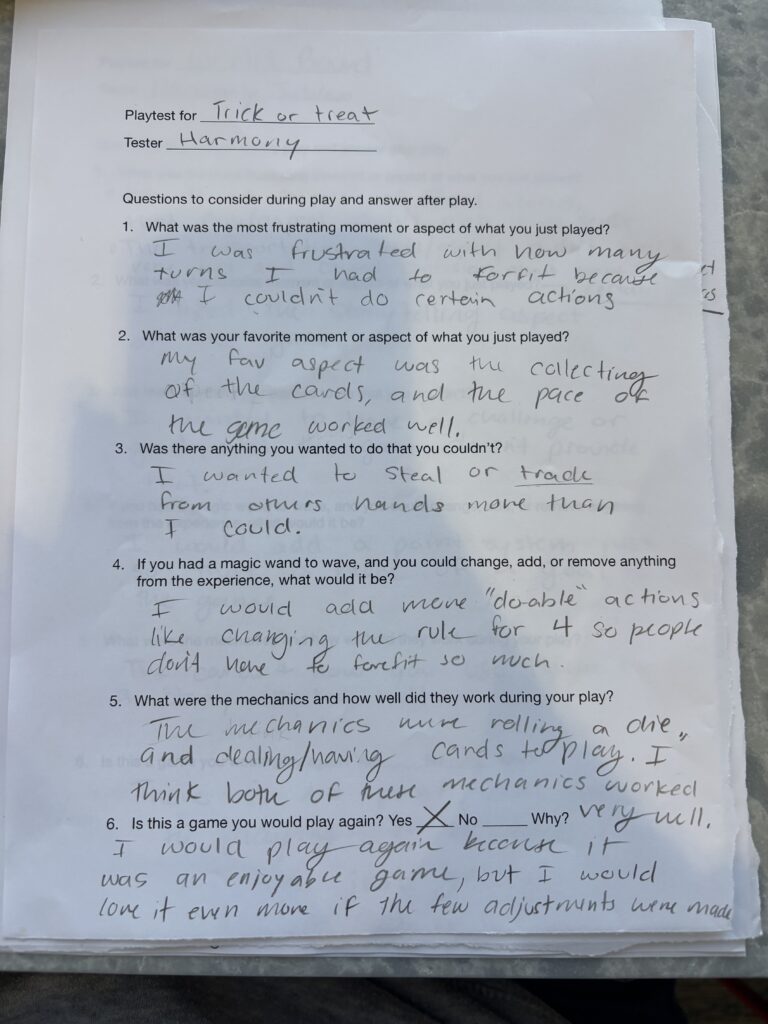 Playtest for Trick or treat
Tester Harmony
Questions to consider during play and answer after play.
1. What was the most frustrating moment or aspect of what you just played?
I was frustrated with how many
turns I had to forfit because
I couldn't do certain actions
2. What was your favorite moment or aspect of what you just played?
My fav aspect was the collecting
of the cards, and the pace of
the game worked well.
3. Was there anything you wanted to do that you couldn't?
I wanted to steal or trade
from others hands more than
I could.
4. If you had a magic wand to wave, and you could change, add, or remove anything
from the experience, what would it be?
I would add more "do-able" actions
like changing the rule for 4 so people
don't have to forefit so much.
5. What were the mechanics and how well did they work during your play?
The mechanics were rolling a die,,
and dealing/having cards to play. I
think both of these mechanics worked
very well.
6. Is this a game you would play again? Yes X No ____ Why?
I would play again because it
was an enjoyable game, but I would
love it even more if the few adjustments were made